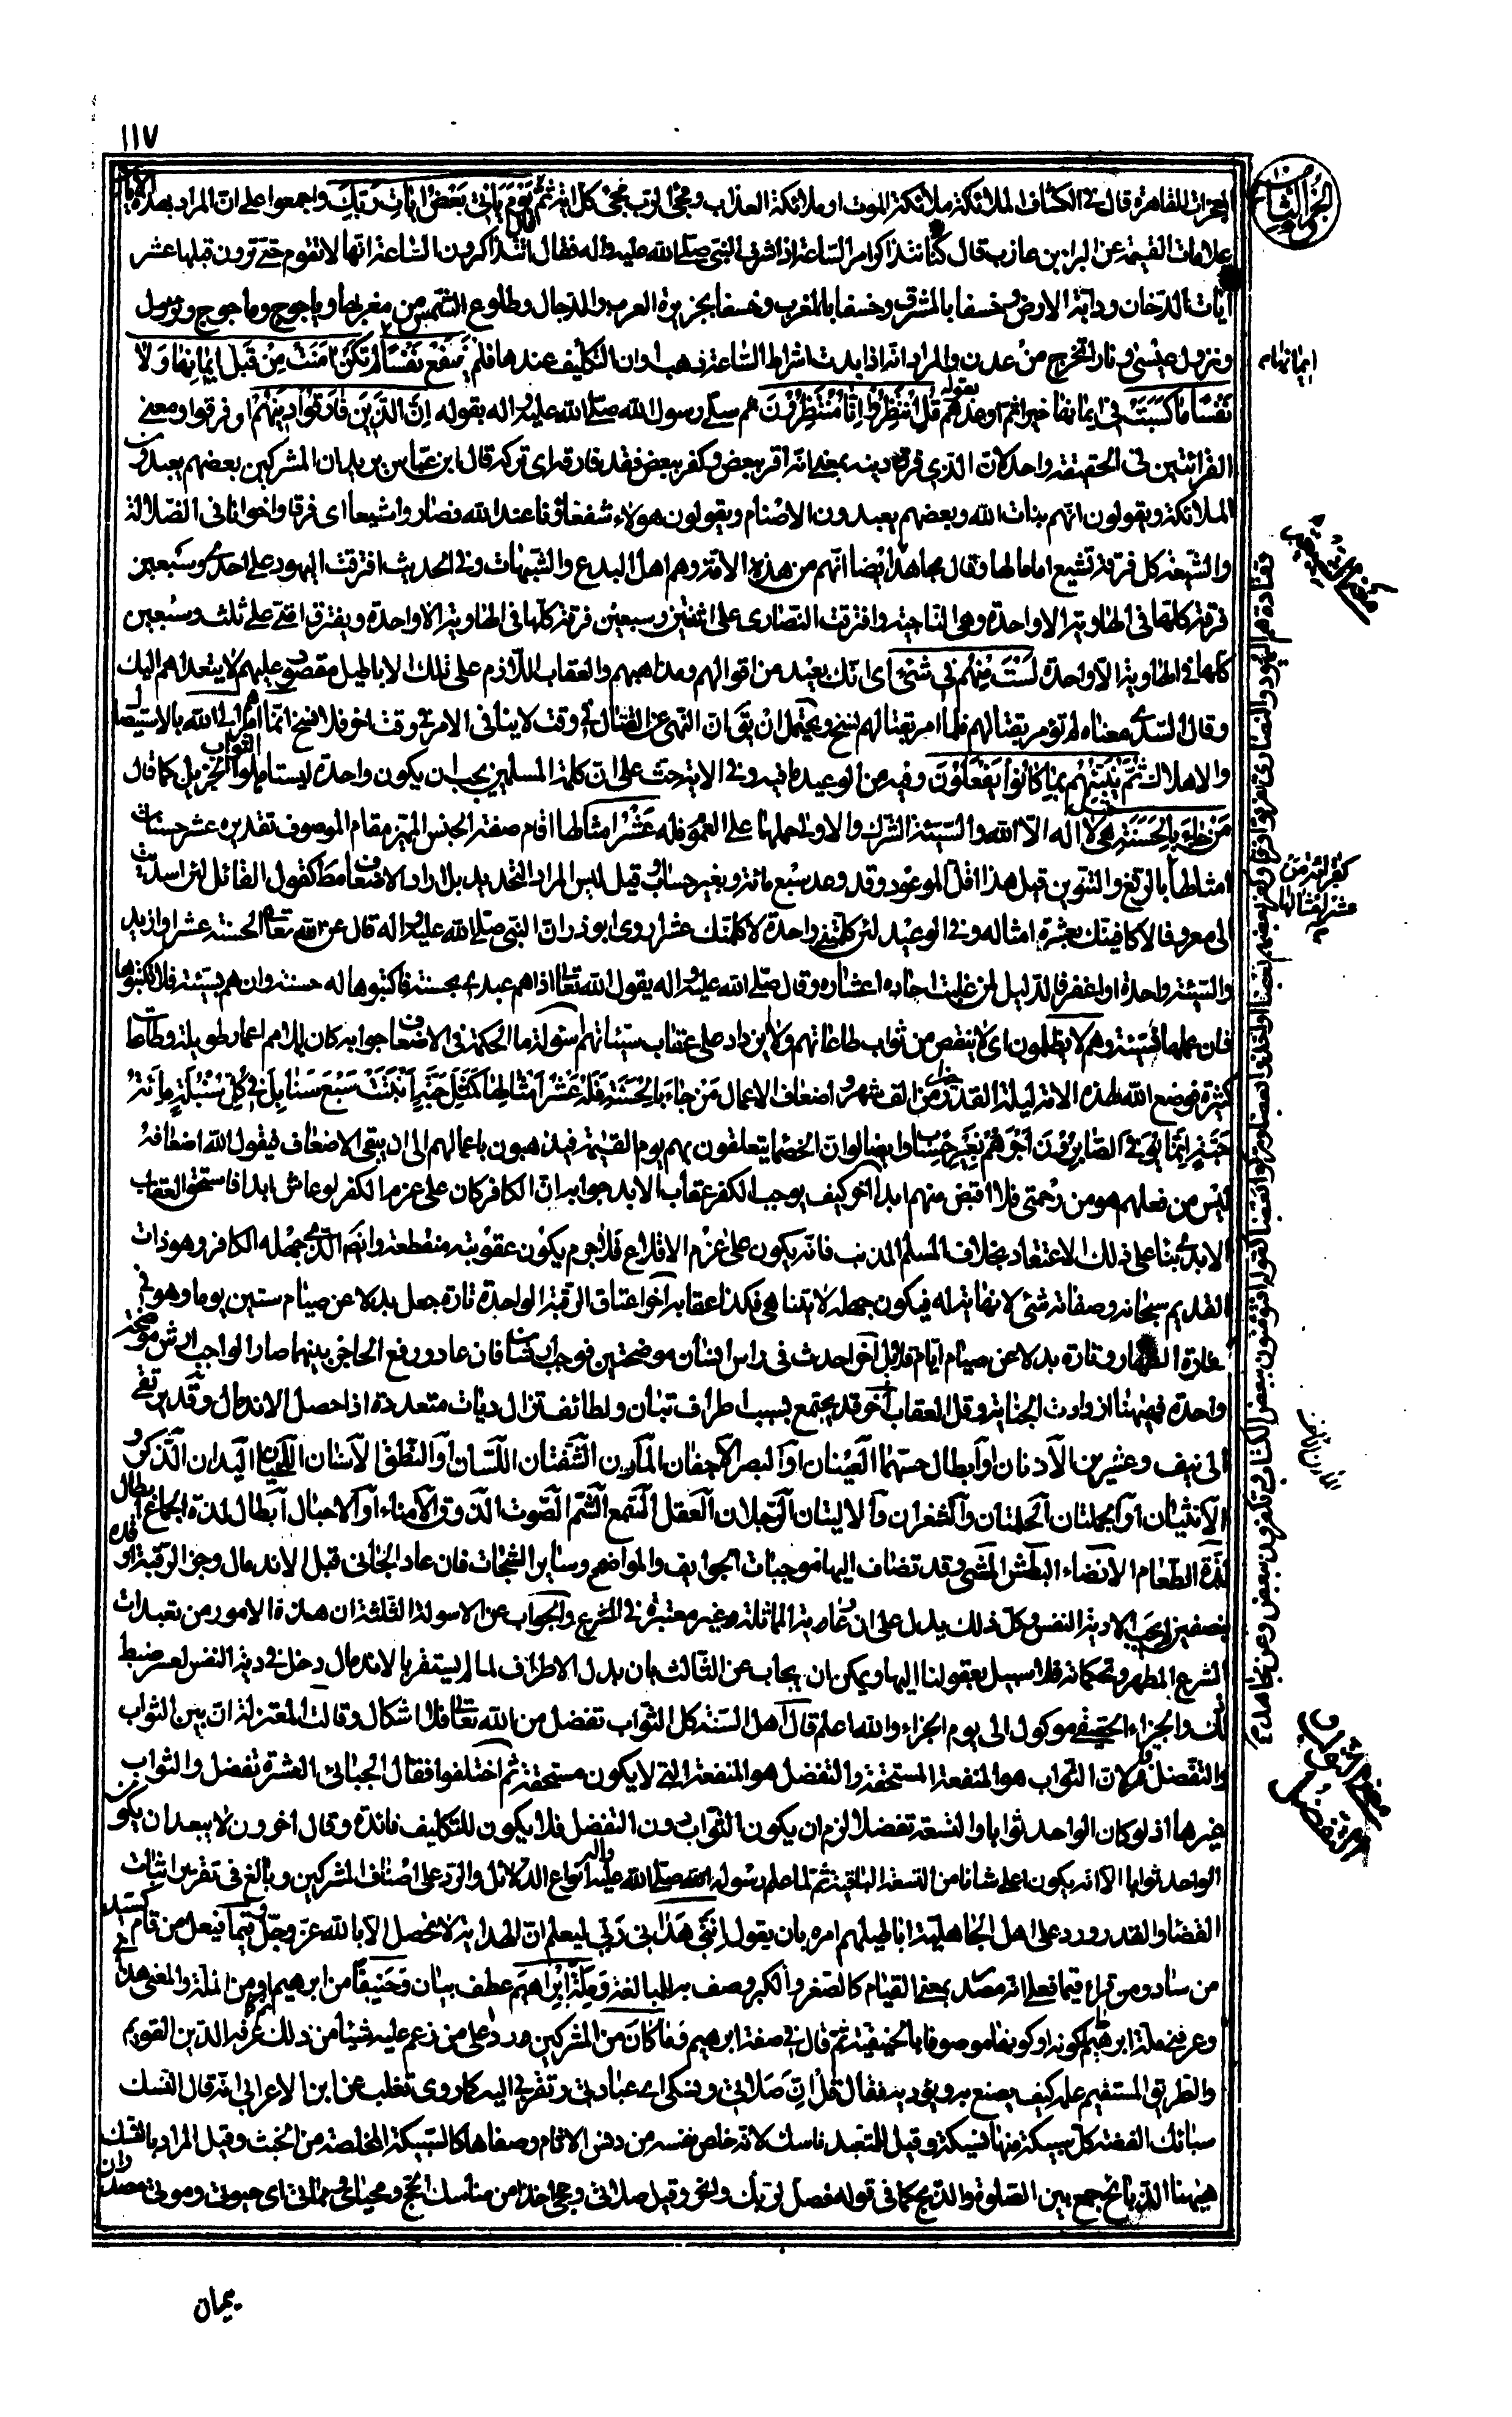 ١١٧
الجزء الثامن
المعجزات القاهرة قال في الكشاف الملائكة ملائكة الموت او ملائكة العذاب ومجئ الرب مجئ كل اية ثم قال يَوْمَ يَأتي بَعْضُ ايٰاتِ رَبِّكَ واجمعوا على ان المراد بهذه الايات
علامات القيمة عن البراء بن عازب قال كنا نتذاكر امر الساعة اذ اشرف النبي صلى الله عليه واله فقال اتتذاكرون الساعة انها لا تقوم حتى ترون قبلها عشر
ايات الدخان ودابة الارض وخسفا بالمشرق وخسفا بالمغرب وخسفا بجزيرة العرب والدجال وطلوع الشمس من مغربها وياجوج وماجوج
ونزول عيسى ونار تخرج من عدن والمراد انه اذا بدت اشراط الساعة ذهب اوان التكليف عندها فلم يَنْفَعُ نَفْسًا لم تَكُنْ امَنَتْ مِنْ قَبْل ايمانها وَلا
نَفْسًا ما كَسَبَتْ في ايمانها خيرا ثم اوعدهم بقوله قُل انْتَظِرُوا اِنّا مُنْتَظِرُونَ ثم سلى رسول الله صلى الله عليه واله بقوله اِنَّ الَّذينَ فارَقُوا دينَهُم او فرقوا ومعنى
القرائتين في الحقيقة واحد لان الذي فرق دينه بمعنى انه اقر ببعض وكفر ببعض فقد فارقه اى تركه قال ابن عباس يريد ان المشركين بعضهم يعبدون
الملائكة ويقولون انهم بنات الله وبعضهم يعبدون الاصنام ويقولون هؤلاء شفعاؤنا عند الله فصاروا شيعا اى فرقا واخوانا في الضلالة
والشيعة كل فرقة تشيع امامها وقال مجاهد ايضا انهم من هذه الامة وهم اهل البدع والشبهات وفي الحديث افترقت اليهود على احدى وسبعين
فرقة كلها في الهاوية الا واحدة وهى الناجية وافترقت النصارى على اثنتين وسبعين فرقة كلها في الهاوية الا واحدة ويفترق امتى على ثلث وسبعين
كلها في الهاوية الا واحدة لَسْتَ مِنْهُم في شَيْء اى انك بعيد من اقوالهم ومذاهبهم والعقاب اللازم على تلك الاباطيل مقصور عليهم لا يتعداهم اليك
وقال السدى معناه لم تؤمر بقتالهم فلما امر بقتالهم نسخ ويحتمل ان يق ان النهى عن القتال في وقت لا ينافى الامر في وقت اخر فلا نسخ انما امرهم الى الله بالاستيصال
والاهلاك ثُمَّ يُنَبِّئُهُم بِما كانُوا يَفْعَلُونَ وفيه من الوعيد ما فيه وفي الاية حث على ان كلمة المسلمين يجب ان يكون واحدة ليستاهلوا الثواب الجزيل كما قال
مَنْ جاءَ بِالْحَسَنَةِ هى لا اله الا الله والسيئة الشرك والاولى حملها على العموم فله عَشْرُ امثالها اقام صفة الجنس المميز مقام الموصوف تقديره عشر حسنات
امثالها بالرفع والتنوين قيل هذا اقل الموعود وقد وعد سبع مائة وبغير حساب وقيل ليس المراد التحديد بل اراد الاضعاف مط كقول القائل لئن اسديت
الى معروفا لاكافينك بعشرة امثاله وفي الوعيد لئن كلمتنى واحدة لاكلمنك عشرا روى ابو ذر ان النبي صلى الله عليه واله قال عن الله تعالى الحسنة عشر او ازيد
والسيئة واحدة او اغفر فالويل لمن غلبت احاده اعشاره وقال صلى الله عليه واله يقول الله تعالى اذا هم عبدى بحسنة فاكتبوها له حسنة وان هم بسيئة فلا تكتبوها
فان عملها فسيئة وهم لا يظلمون اى لا ينقص من ثواب طاعاتهم ولا يزاد على عقاب سيئاتهم اسولة ما الحكمة في الاضعاف جوابه كان للامم اعمار طويلة وطاعات
كثيرة فوضع الله لهذه الامة ليلة القدر خير من الف شهر واضعاف الاعمال مَنْ جاءَ بِالْحَسَنَةِ فَلَهُ عَشْرُ اَمْثالِها كَمَثَلِ حَبَّةٍ اَنْبَتَتْ سَبْعَ سَنابِلَ في كُلِّ سُنْبُلَةٍ مِائَةُ
حَبَّةٍ اِنَّما يُوَفَّى الصّابِرُونَ اَجْرَهُم بِغَيْرِ حِسابٍ وايضا لو ان الخصماء يتعلقون بهم يوم القيمة فيذهبون باعمالهم الى ان يبقى الاضعاف فيقول الله اضعافه
ليس من فعلهم هو من رحمتى فلا اقبض منهم ابدا اخر كيف يوجب الكفر عقاب الابد جوابه ان الكافر كان على عزم الكفر لو عاش ابدا فاستحق العقاب
الابدى بناء على ذلك الاعتقاد بخلاف المسلم المذنب فانه يكون على عزم الاقلاع فلا جرم يكون عقوبته منقطعة وايضا الذى جهله الكافر وهو ذات
القديم سبحانه وصفاته شئ لا نهاية له فيكون جهله لا يتناهى فكذا عقابه اخر اعتاق الرقبة الواحدة تارة جعل بدلا عن صيام ستين يوما وهو في
كفارة الظهار وتارة بدلا عن صيام ايام قلائل اخر احدث في راس انسان موضحتين فوجب ارشان فان عاد ورفع الحاجز بينهما صار الواجب ارش موضحة
واحدة فههنا ازدادت الجناية وقل العقاب اخر قد يجتمع بسبب اطراف تبان ولطائف تزال ديات متعددة اذا حصل الاندمال وقد يرتقى
الى نيف وعشرين الاذنان او ابطال حسهما العينان او البصر الاجفان المارن الشفتان اللسان او النطق الاسنان اللحيان اليدان الذكر و
الانثيان او الحلمتان والشفران والاليتان الرجلان العقل السمع الشم الصوت الذوق الامناء او الاحبال ابطال لذة الجماع ابطال
لذة الطعام الافضاء البطش المشى وقد تضاف اليها موجبات الجوايف والمواضح وساير الشجات فان عاد الجانى قبل الاندمال وحز الرقبة او قده
بنصفين لم يجب الا دية النفس وكل ذلك يدل على ان رعاية المماثلة غير معتبرة في الشرع والجواب عن الاسولة الثلثة ان هذه الامور من تعبدات
الشرع المطهر وتحكماته فلا سبيل بعقولنا اليها ويمكن ان يجاب عن الثالث بان بدل الاطراف لما لم يستقر بالاندمال دخل في دية النفس لعسر ضبط
ذلك والجزاء الحقيقى موكول الى يوم الجزاء والله اعلم قال اهل السنة كل الثواب تفضل من الله تعالى فلا اشكال وقالت المعتزلة ان بين الثواب
والتفضل فرقا لان الثواب هو المنفعة المستحقة والتفضل هو المنفعة التى لا يكون مستحقة ثم اختلفوا فقال الجبائى العشرة تفضل والثواب
غيرها اذ لو كان الواحد ثوابا والتسعة تفضلا لزم ان يكون الثواب دون التفضل فلا يكون للتكليف فائدة وقال اخرون لا يبعد ان يكون
الواحد ثوابا الا انه يكون اعلى شانا من التسعة الباقية ثم لما علم رسوله صلى الله عليه واله انواع الدلائل والرد على اصناف المشركين وبالغ في تقرير اثبات
القضاء والقدر ورد على اهل الجاهلية اباطيلهم امره بان يقول اِنَّنى هَدانى رَبّى ليعلم ان الهداية لا تحصل الا بالله عز وجل وقيما فيعل من قام كسيد
من ساد ومن قراء قيما فعلى انه مصدر بمعنى القيام كالصغر والكبر وصف به للمبالغة ومِلَّةَ اِبْراهيمَ عطف بيان وحَنيفًا من ابرهيم او من الملة والمعنى هدانى
وعرفنى ملة ابرهيم كونه او كونها موصوفا بالحنيفية ثم قال في صفة ابرهيم وَما كانَ مِنَ المشركين ردا على من زعم عليه شيئا من ذلك ثم كما عرفه الدين القويم
والطريق المستقيم علمه كيف يصنع به ويؤديه فقال قل اِنَّ صَلاتى ونسكى اى عبادتى وتقربى اليه كما روى ثعلب عن ابن الاعرابى انه قال النسك
سبائك الفضة كل سبيكة منها نسيكة وقيل للمتعبد ناسك لانه خلص نفسه من دنس الاثام وصفاها كالسبيكة المخلصة من الخبث وقيل المراد بالنسك
ههنا الذبائح جمع بين الصلوة والذبح كما في قوله فصل لربك وانحر وقيل صلاتى وحجى اخذا من مناسك الحج ومحياى ومماتى اى حيوتى وموتى مصدران
ايمانها
عشر امثالها
يميان